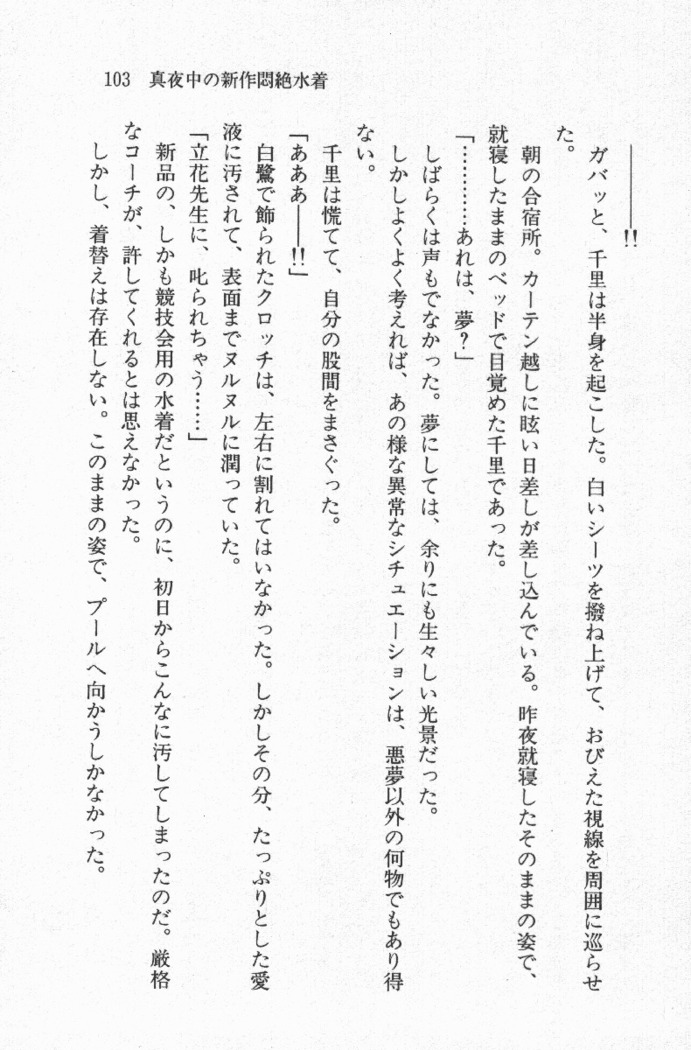 103 真夜中の新作悶絶水着
――――!!
ガバッと、千里は半身を起こした。白いシーツを撥ね上げて、おびえた視線を周囲に巡らせ
た。
朝の合宿所。カーテン越しに眩い日差しが差し込んでいる。昨夜就寝したそのままの姿で、
就寝したままのベッドで目覚めた千里であった。
「…………あれは、夢?」
しばらくは声もでなかった。夢にしては、余りにも生々しい光景だった。
しかしよくよく考えれば、あの様な異常なシチュエーションは、悪夢以外の何物でもあり得
ない。
千里は慌てて、自分の股間をまさぐった。
「あああ――!!」
白鷺で飾られたクロッチは、左右に割れてはいなかった。しかしその分、たっぷりとした愛
液に汚されて、表面までヌルヌルに潤っていた。
「立花先生に、叱られちゃう……」
新品の、しかも競技会用の水着だというのに、初日からこんなに汚してしまったのだ。厳格
なコーチが、許してくれるとは思えなかった。
しかし、着替えは存在しない。このままの姿で、プールへ向かうしかなかった。